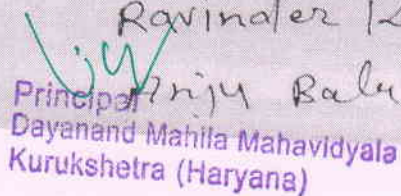 Ravinder
Anju Bala
Principal
Dayanand Mahila Mahavidyala
Kurukshetra (Haryana)